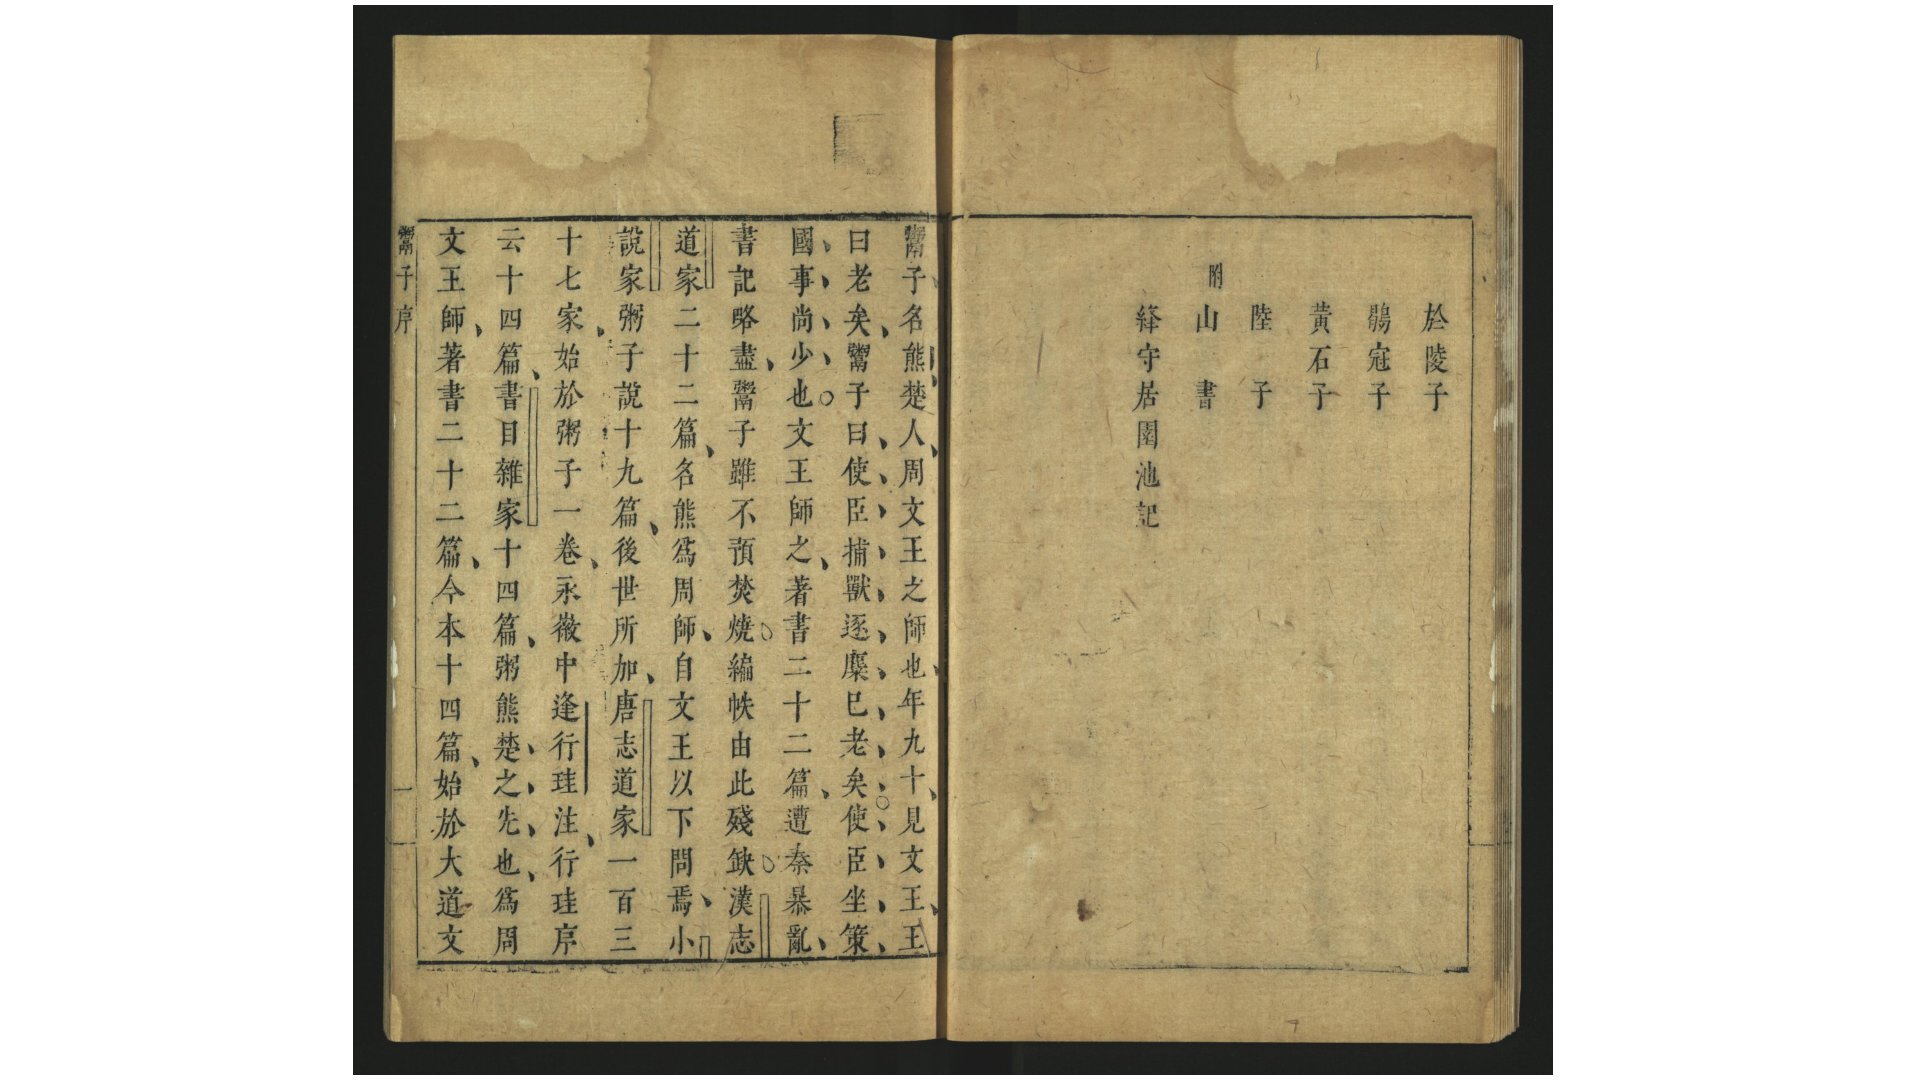 於陵子
鶡冠子
黃石子
陸子
附
山書
絳守居園池記
鬻子名熊楚人周文王之師也年九十見文王王
曰老矣鬻子曰使臣捕獸逐麋已老矣使臣坐策
國事尚少也文王師之著書二十二篇遭秦暴亂
書記略盡鬻子雖不預焚燒編帙由此殘缺漢志
道家二十二篇名熊為周師自文王以下問焉小
說家粥子說十九篇後世所加唐志道家一百三
十七家始於粥子一卷永徽中逢行珪注行珪序
云十四篇書目雜家十四篇粥熊楚之先也為周
文王師著書二十二篇今本十四篇始於大道文
鬻子序
一